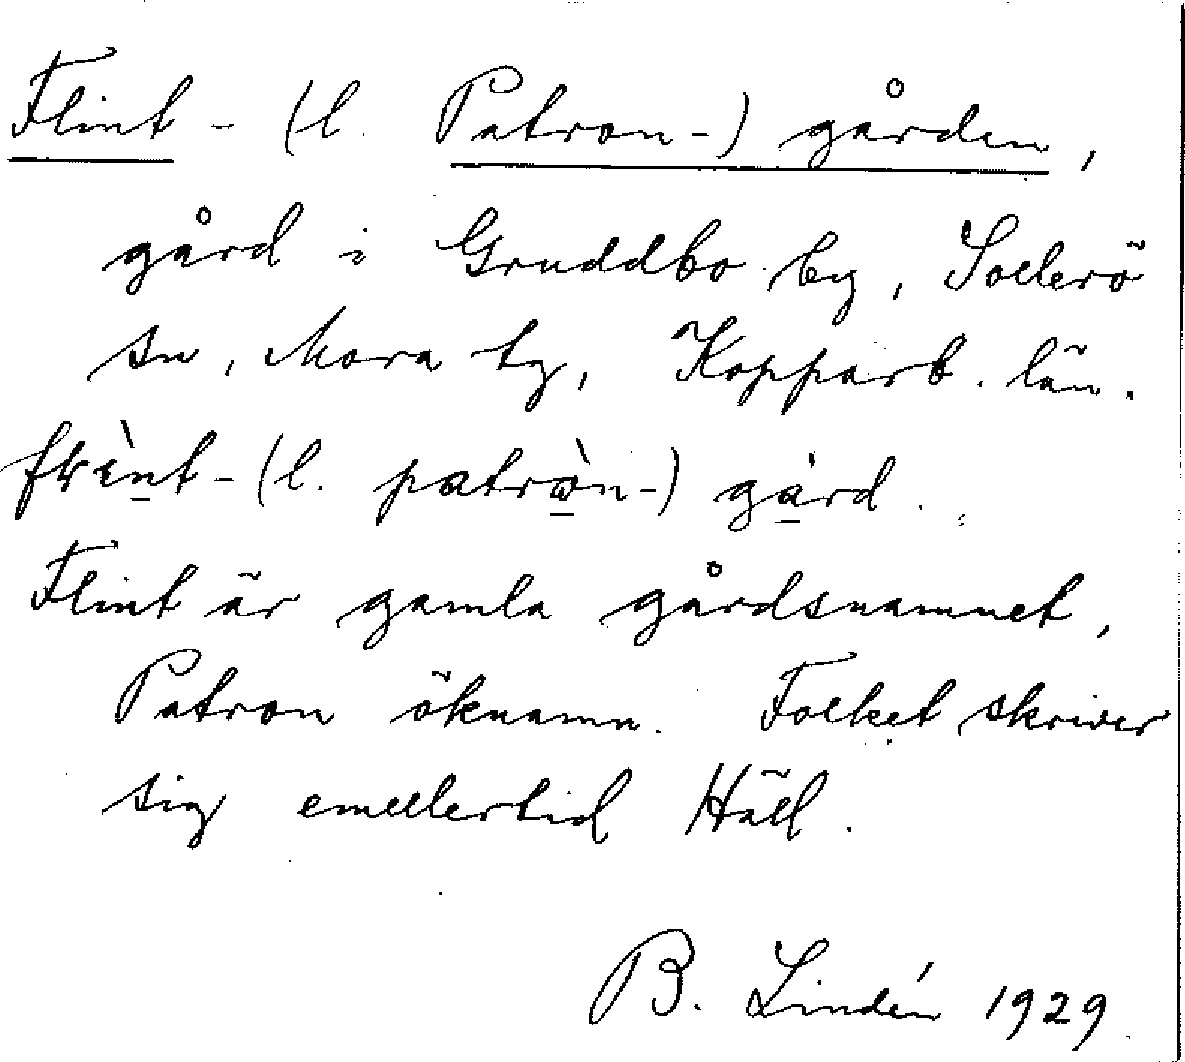 Flint- (l. Patron-) gården,
gård i Gruddbo by, Sollerö
sn, Mora tg, Kopparb. län.
frìnt- (l. patròn-) gàrd.
Flint är gamla gårdsnamnet,
Patron öknamn. Folket skriver
sig emellertid Häll.
B. Lindén 1929